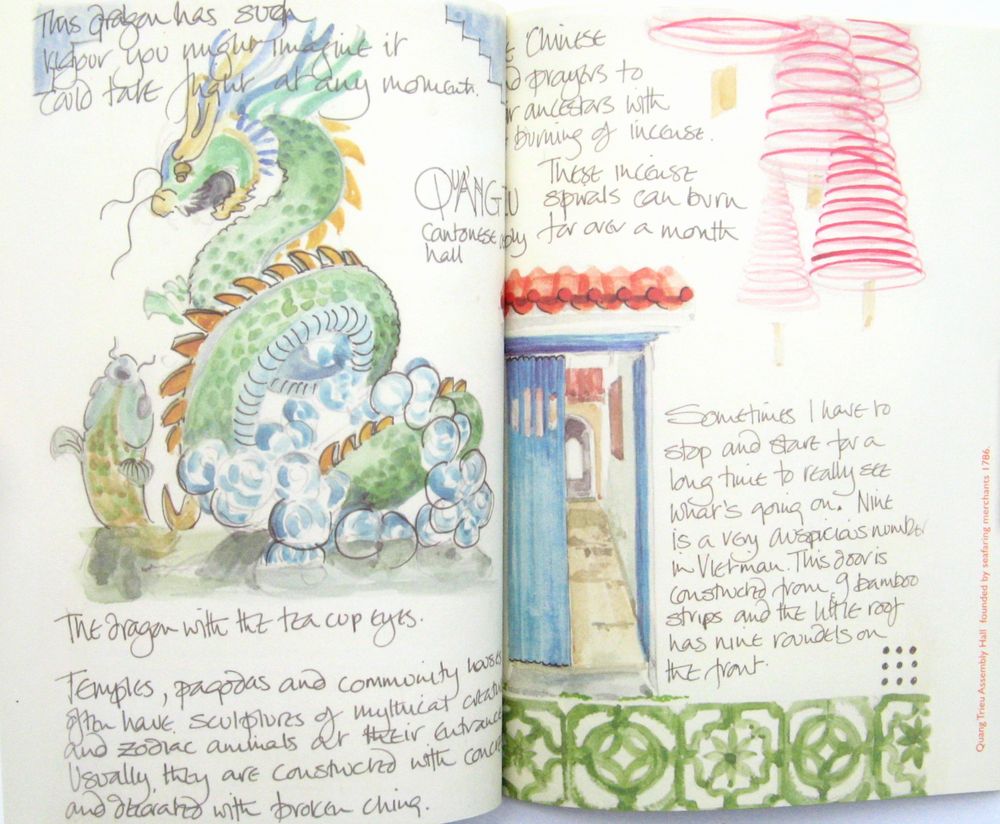 This dragon has such
vigour you might imagine it
could take flight at any moment.
QUANG
cantonese
hall
The dragon with the tea cup eyes.
Temples, pagodas and community houses
often have sculptures of mythical
and zodiac animals at their entrance
Usually, they are constructed with
and decorated with broken china.
Chinese
prayers to
ancestors with
burning of incense.
These incense
spirals can burn
for over a month
Sometimes I have to
stop and stare for a
long time to really see
what's going on. Nine
is a very auspicious number
in Vietman. This door is
constructed from 9 bamboo
strips and the little roof
has nine roundels on
the front.
Quang Trieu Assembly Hall founded by seafaring merchants 1786.